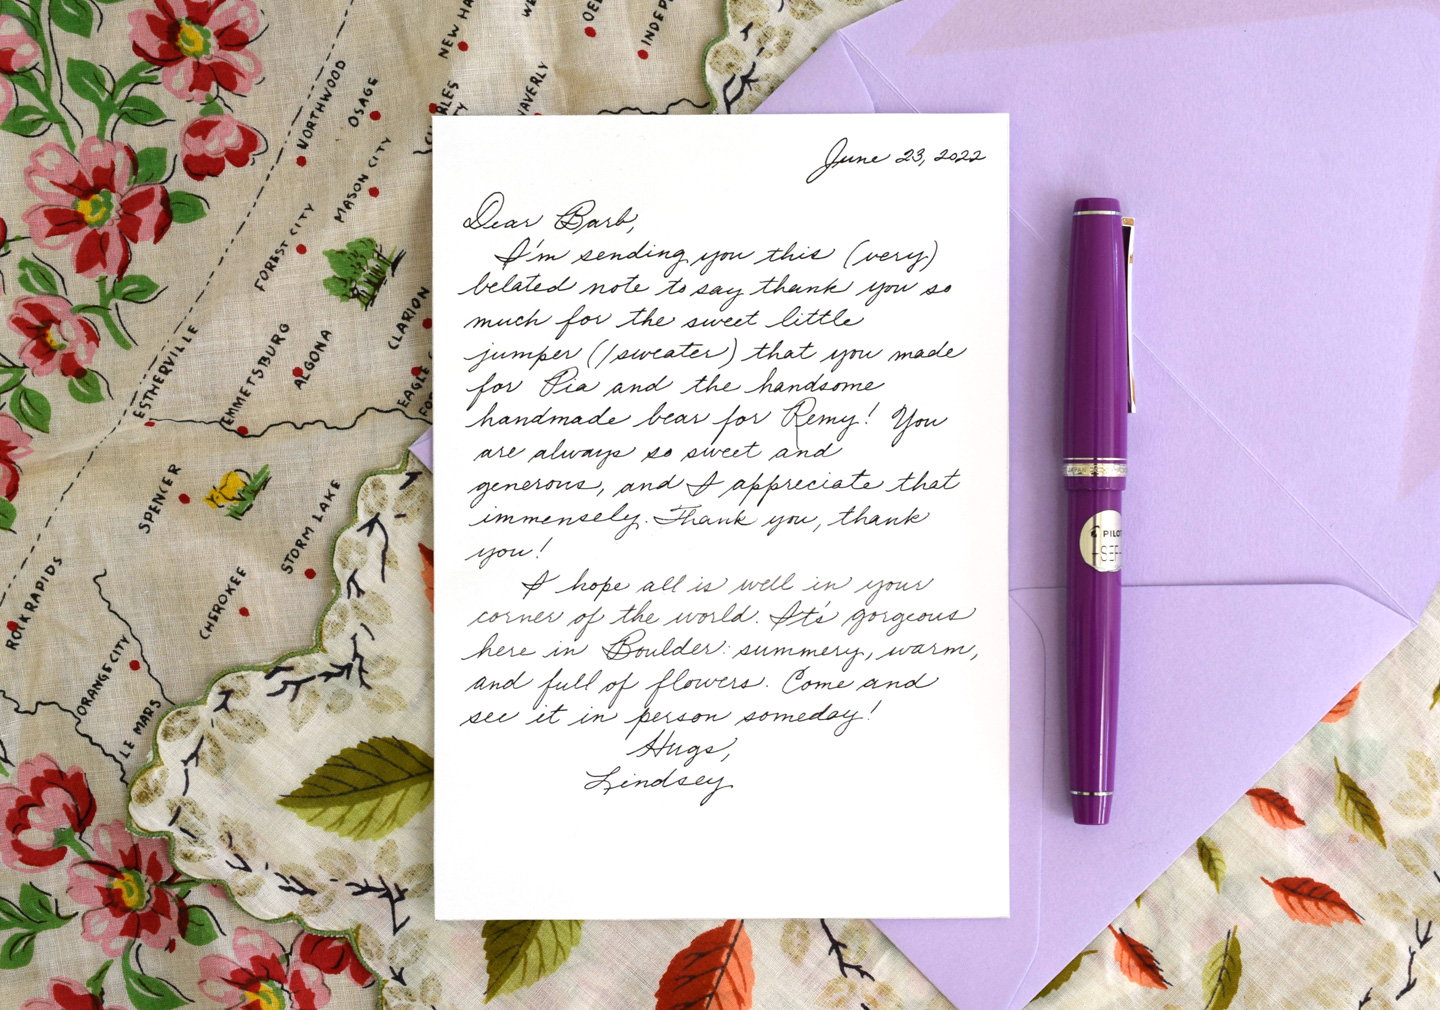 June 23, 2022
Dear Barb,
I'm sending you this (very)
belated note to say thank you so
much for the sweet little
jumper (/sweater) that you made
for Pia and the handsome
handmade bear for Remy! You
are always so sweet and
generous, and I appreciate that
immensely. Thank you, thank
you!
I hope all is well in your
corner of the world. It's gorgeous
here in Boulder: summery, warm,
and full of flowers. Come and
see it in person someday!
Hugs,
Lindsey
NORTHWOOD
OSAGE
MASON CITY
FOREST CITY
CLARION
ALGONA
EMMETSBURG
ESTHERVILLE
EAGLE
SPENCER
STORM LAKE
CHEROKEE
ROCK RAPIDS
ORANGE CITY
LE MARS
NEW HA
WAVERLY
OEL
INDEP
JAPAN
PILOT